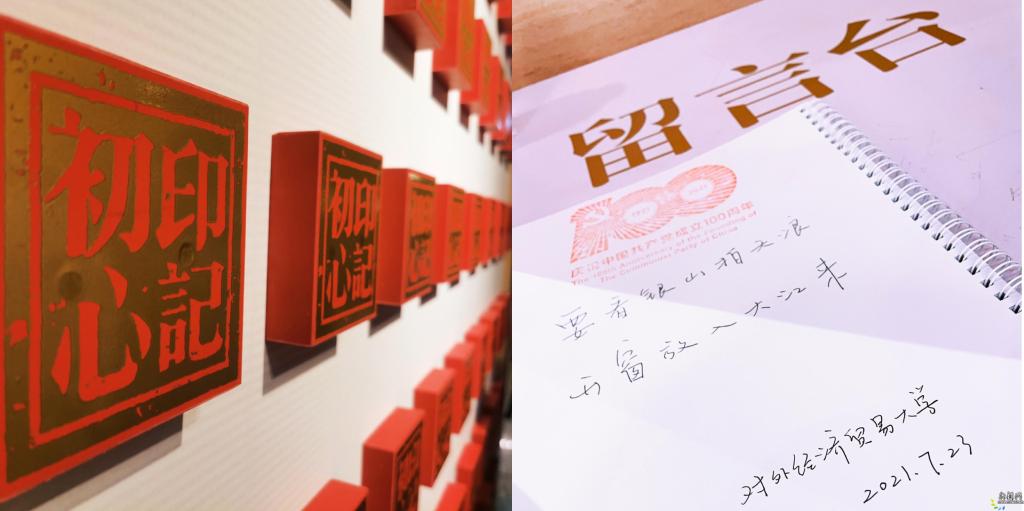 印記
初心
印記
初心
留言台
1921 2021
庆祝中国共产党成立100周年
The 100th Anniversary of the Founding of
The Communist Party of China
要看银山拍天浪
开窗放入大江来
对外经济贸易大学
2021.7.23